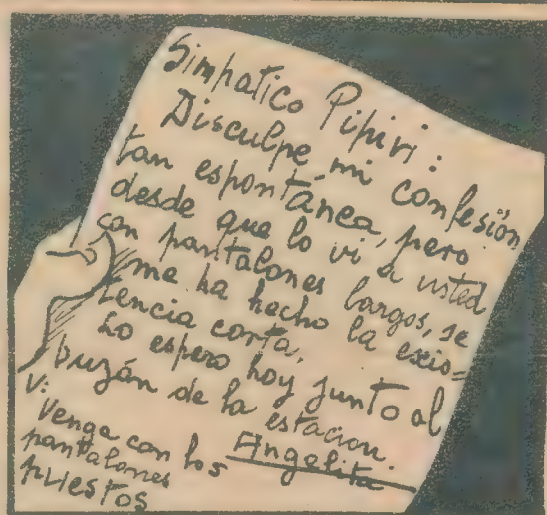 Simpatico Pipiri:
Disculpe mi confesión
tan espontánea, pero
desde que lo vi a usted
con pantalones largos, se
me ha hecho la exis=
tencia corta.
Lo espero hoy junto al
buzón de la estacion.
Angelita
V:
Venga con los
pantalones
puestos